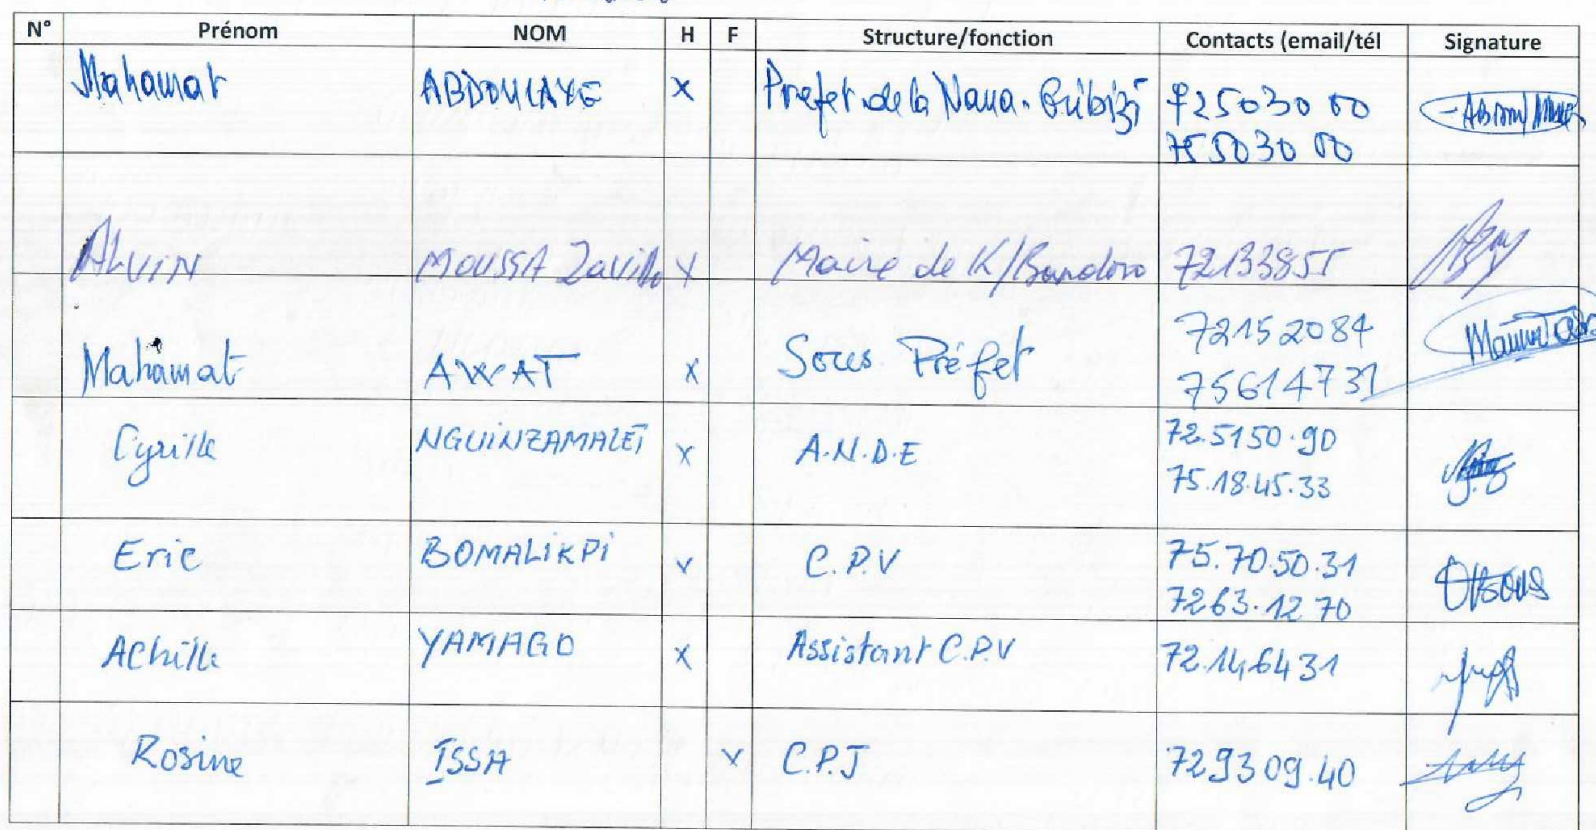 N° Prénom NOM H F Structure/fonction Contacts (email/tél Signature
Mahamat ABDOULAYE X Prefet de la Nana-Gribizi 72503000
75503000
ALVIN MOUSSA X Maire de K/Bandoro 72133855
Mahamat AWAT X Sous Préfet 72152084
75614731
Cyrille NGUINZAMALET X A.N.D.E 72.5150.90
75.18.45.33
Eric BOMALIKPI X C.P.V 75.70.50.31
7263.12.70
Achille YAMAGO X Assistant C.P.V 72.146431
Rosine ISSA X C.P.J 729309.40